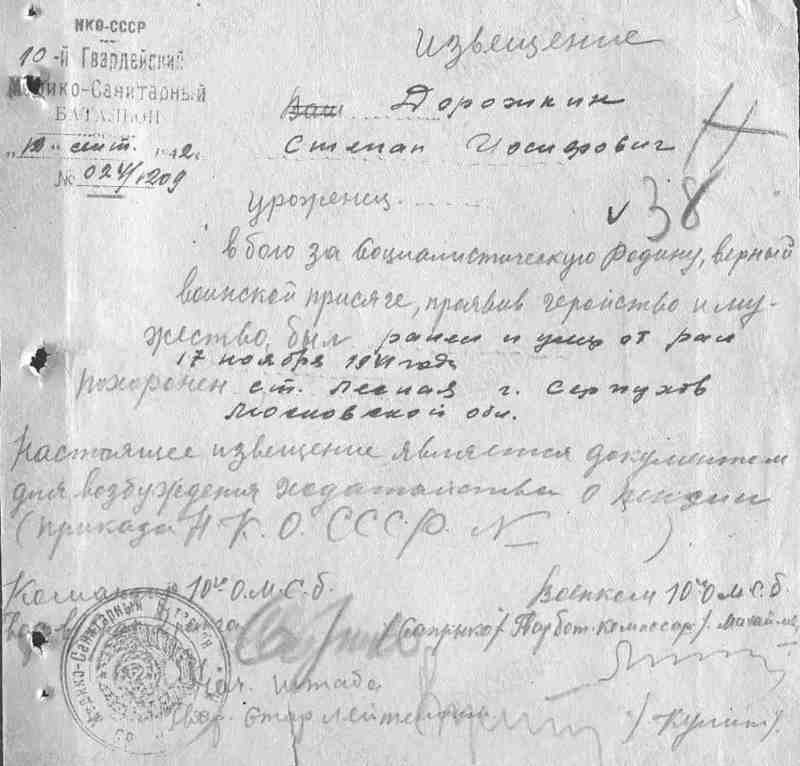 НКО-СССР
10-й Гвардейский
Медико-Санитарный
БАТАЛЬОН
"12" сент. 1942г.
№ 024/1209
Извещение
Ваш Дорожкин
Степан Иосифович
Н
уроженец
v 38
в бою за Социалистическую Родину, верный
воинской присяге, проявив геройство и му-
жество, был ранен и умер от ран
17 ноября 1941 года
Похоронен ст. Лесная г. Серпухов
Московской обл.
Настоящее извещение является документом
для возбуждения ходатайства о пенсии
(приказа Н.К.О. СССР. № )
Командир 10го О.М.С.б.
Военком 10го О.М.С.б.
ранга
/Сапрыко/
комиссар/
Нач. штаба
Стар Лейтенант
/Кулик/
Медико-Санитарный Батальон